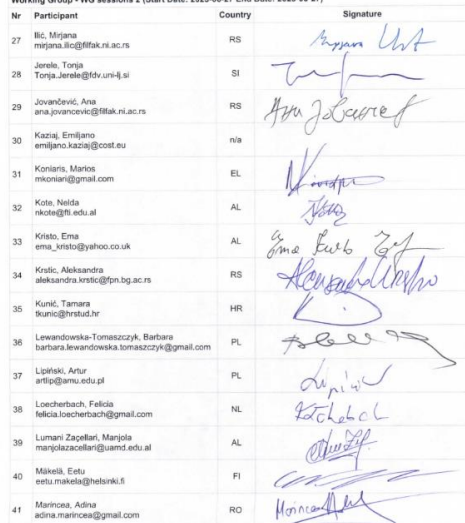 Working Group - WG sessions 2 (Start Date: 2023-03-27 End Date: 2023-03-27)
Nr Participant Country Signature
27 Ilić, Mirjana RS
mirjana.ilic@filfak.ni.ac.rs
28 Jerele, Tonja SI
Tonja.Jerele@fdv.uni-lj.si
29 Jovančević, Ana RS
ana.jovancevic@filfak.ni.ac.rs
30 Kaziaj, Emiljano n/a
emiljano.kaziaj@cost.eu
31 Koniaris, Marios EL
mkoniari@gmail.com
32 Kote, Nelda AL
nkote@fti.edu.al
33 Kristo, Ema AL
ema_kristo@yahoo.co.uk
34 Krstic, Aleksandra RS
aleksandra.krstic@fpn.bg.ac.rs
35 Kunić, Tamara HR
tkunic@hrstud.hr
36 Lewandowska-Tomaszczyk, Barbara PL
barbara.lewandowska.tomaszczyk@gmail.com
37 Lipiński, Artur PL
artlip@amu.edu.pl
38 Loecherbach, Felicia NL
felicia.loecherbach@gmail.com
39 Lumani Zaçellari, Manjola AL
manjolazacellari@uamd.edu.al
40 Mäkelä, Eetu FI
eetu.makela@helsinki.fi
41 Marincea, Adina RO
adina.marincea@gmail.com